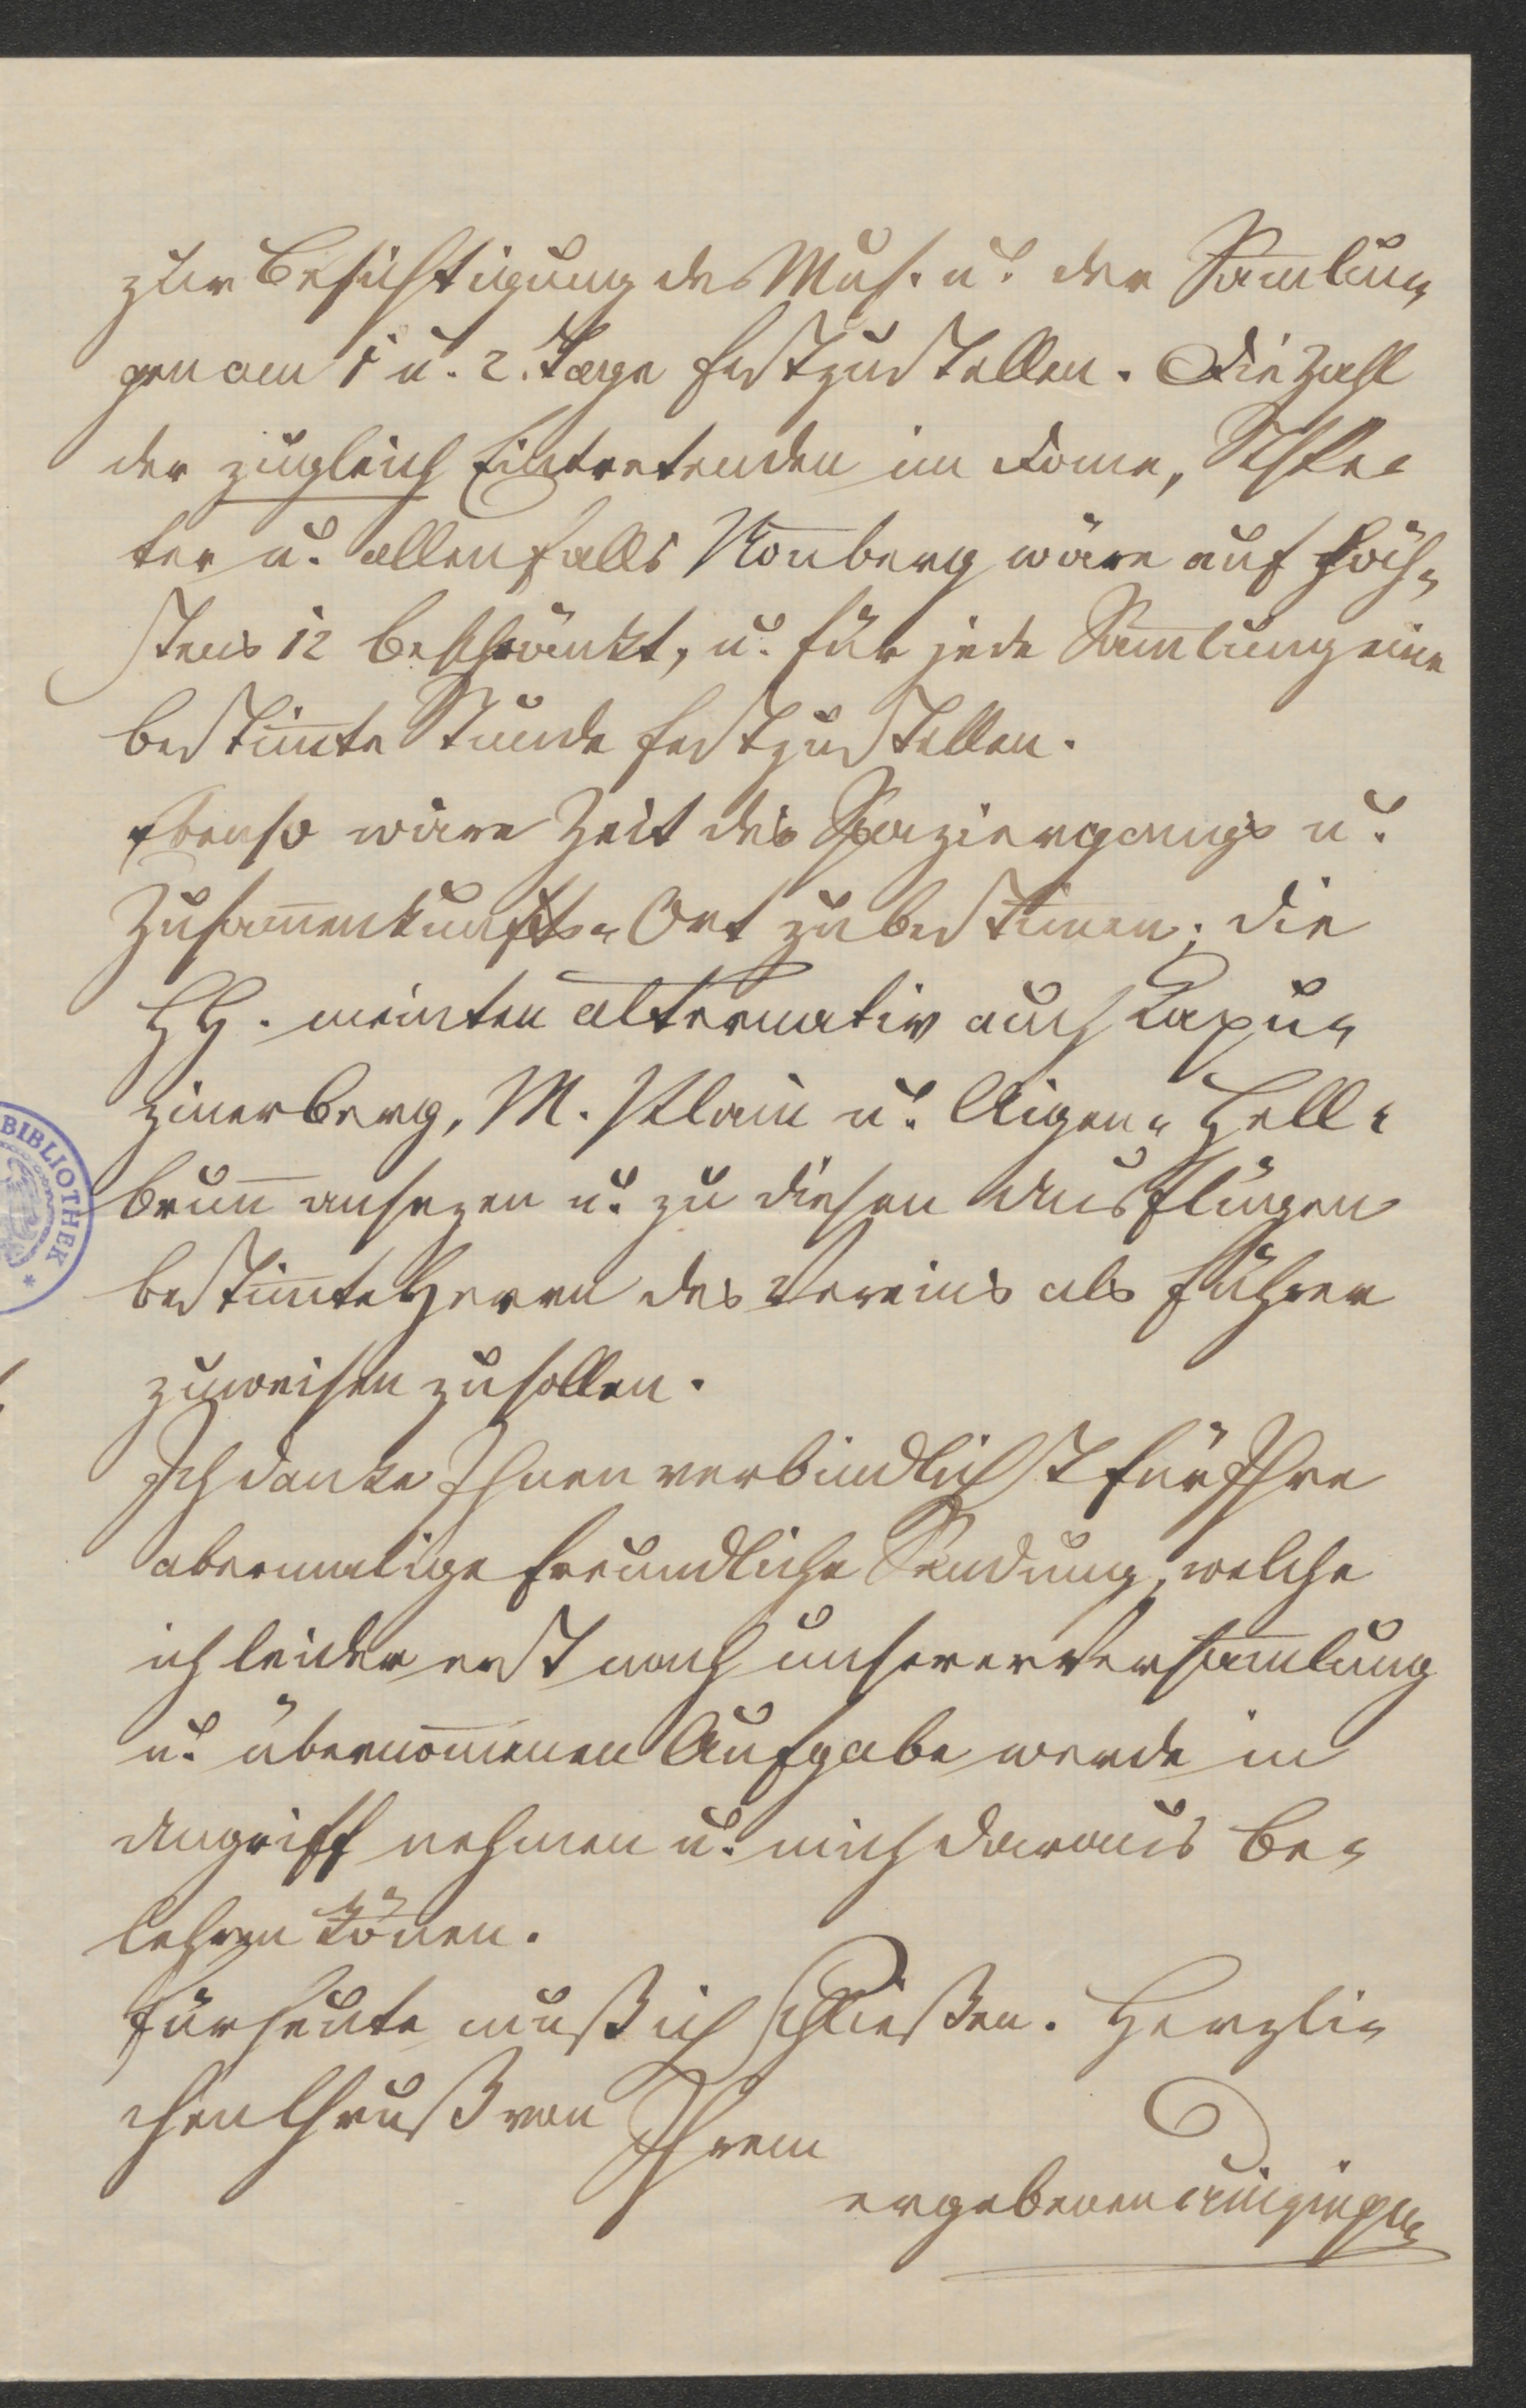 zur Besichtigung des Mus. u. der Sam̄lun-
gen am 1 u. 2. Tage festzustellen. Die Zahl
der zugleich Eintretenden im Dome, St Pe-
ter u. allenfalls Non̄berg wäre auf höch-
stens 12 beschränkt, u. für jede Sam̄lung eine
bestim̄te Stunde festzustellen.
Ebenso wäre Zeit des Spaziergangs u.
Zusam̄enkunfts-Ort zu bestim̄en; die
HH. meinten alternativ auch Kapu-
zinerberg, M. Plain u. Aigen-Hell-
brun̄ ansezen u. zu diesen Ausflügen
bestim̄te Herrn des Vereins als Führer
zuweisen zu sollen.
Ich danke Ihnen verbindlichst für Ihre
abermalige freundliche Sendung, welche
ich leider erst nach unserer Versam̄lung
u. übernom̄enen Aufgabe werde in
Angriff nehmen u. mich daraus be-
lehren kön̄en.
Für heute muß ich schließen. Herzli-
chen Gruß von Ihrem
ergebenen
BIBLIOTHEK